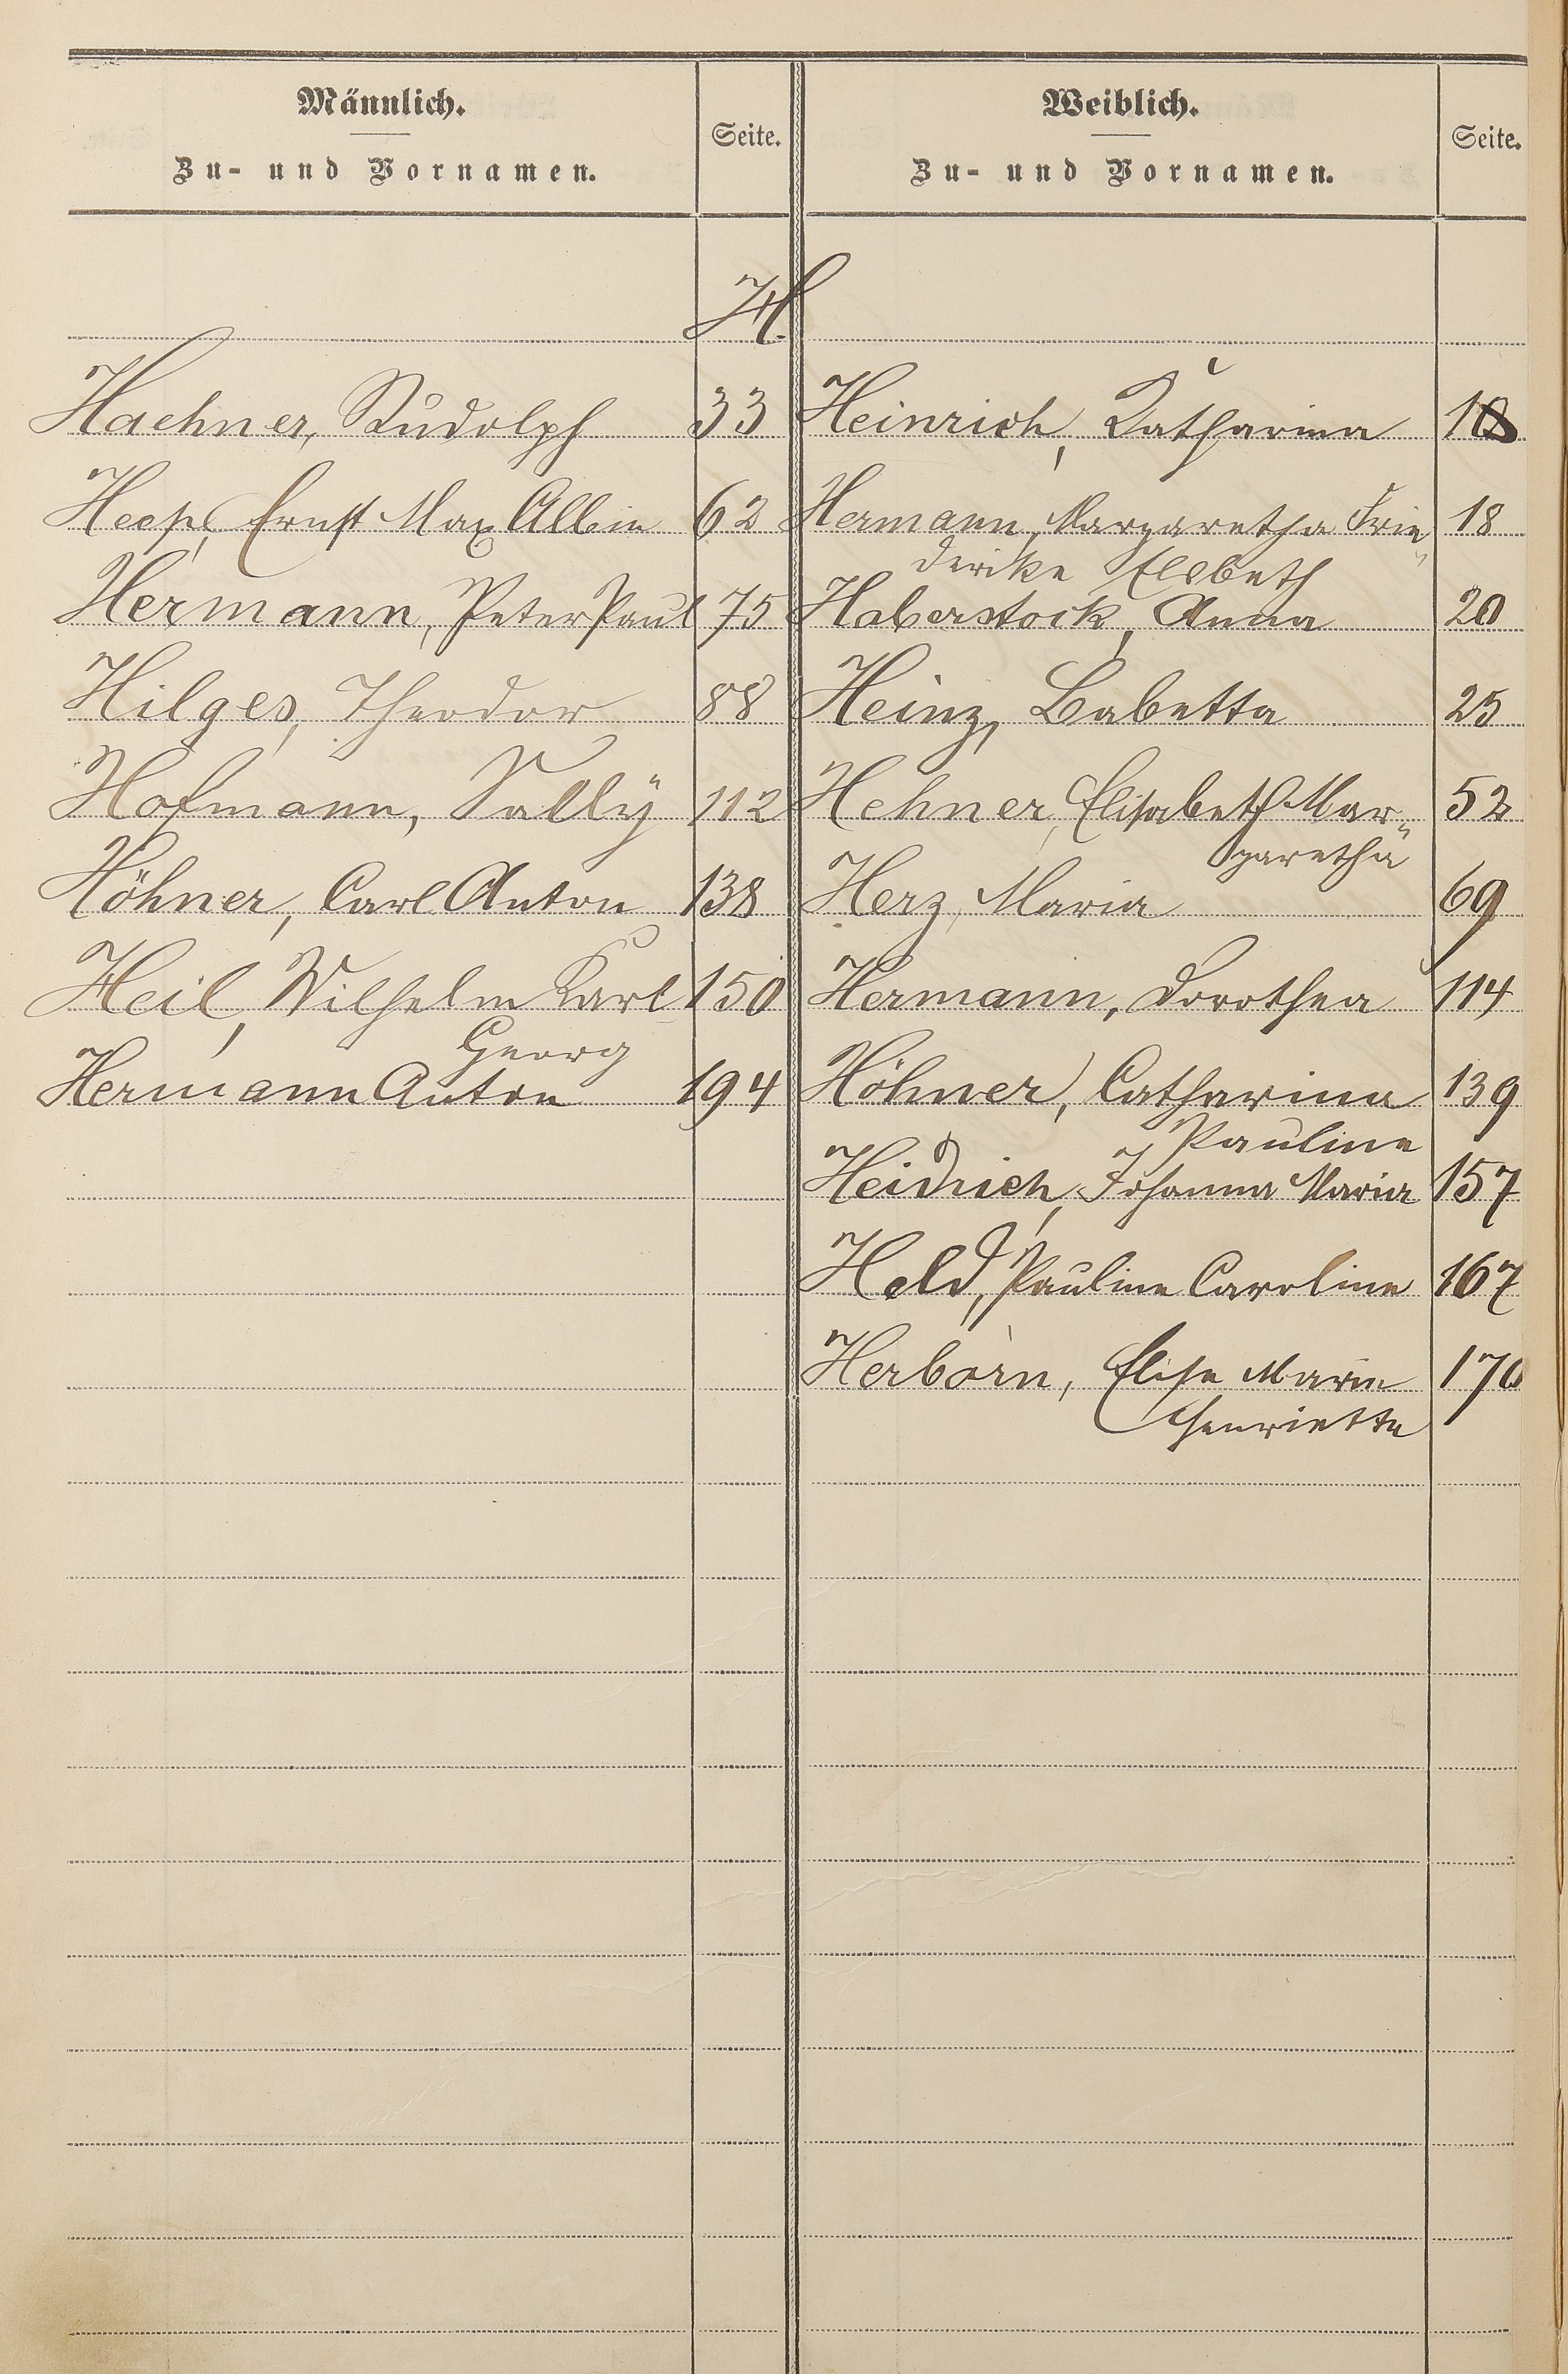 Männlich.
Zu- und Vornamen.
Seite.
Weiblich.
Zu- und Vornamen.
Seite.
H.
Haehner, Rudolph 33
Ernst Max Albin 62
Hermann, Peter Paul 75
Hilges, Theodor 88
Hofmann, Sally 112
Höhner, Carl Anton 138
Heil, Wilhelm Karl 150
Georg
Hermann Anton 194
Heinrich, Katharina
Hermann, Margaretha Frie„ 18
derike Elsbeth
Haberstock, Anna 20
Heinz, Babetta 25
Hehner, Elisabeth Mar„ 52
garetha
Herz, Maria 69
Hermann, Dorothea 114
Höhner, Catharina 139
Pauline
Heidrich, Johanna Maria 157
Held, Pauline Caroline 167
Herborn, Elise Marie 170
Henriette